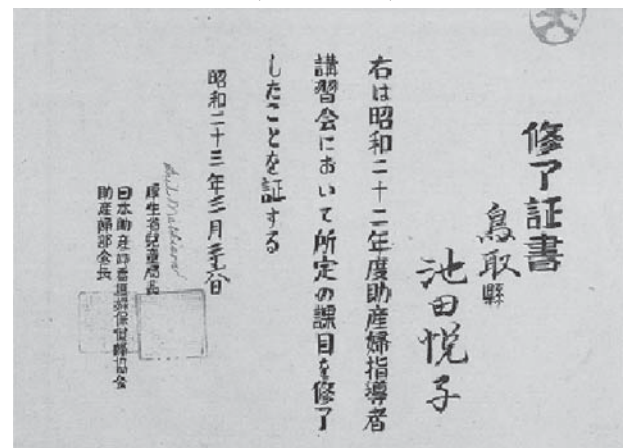 修了証書
鳥取縣
池田悦子
右は昭和二十二年度助産婦指導者
講習会において所定の課目を修了
したことを証する
昭和二十三年三月
厚生省兒童局長
日本助産婦看護婦保健婦協会
助産婦部会長